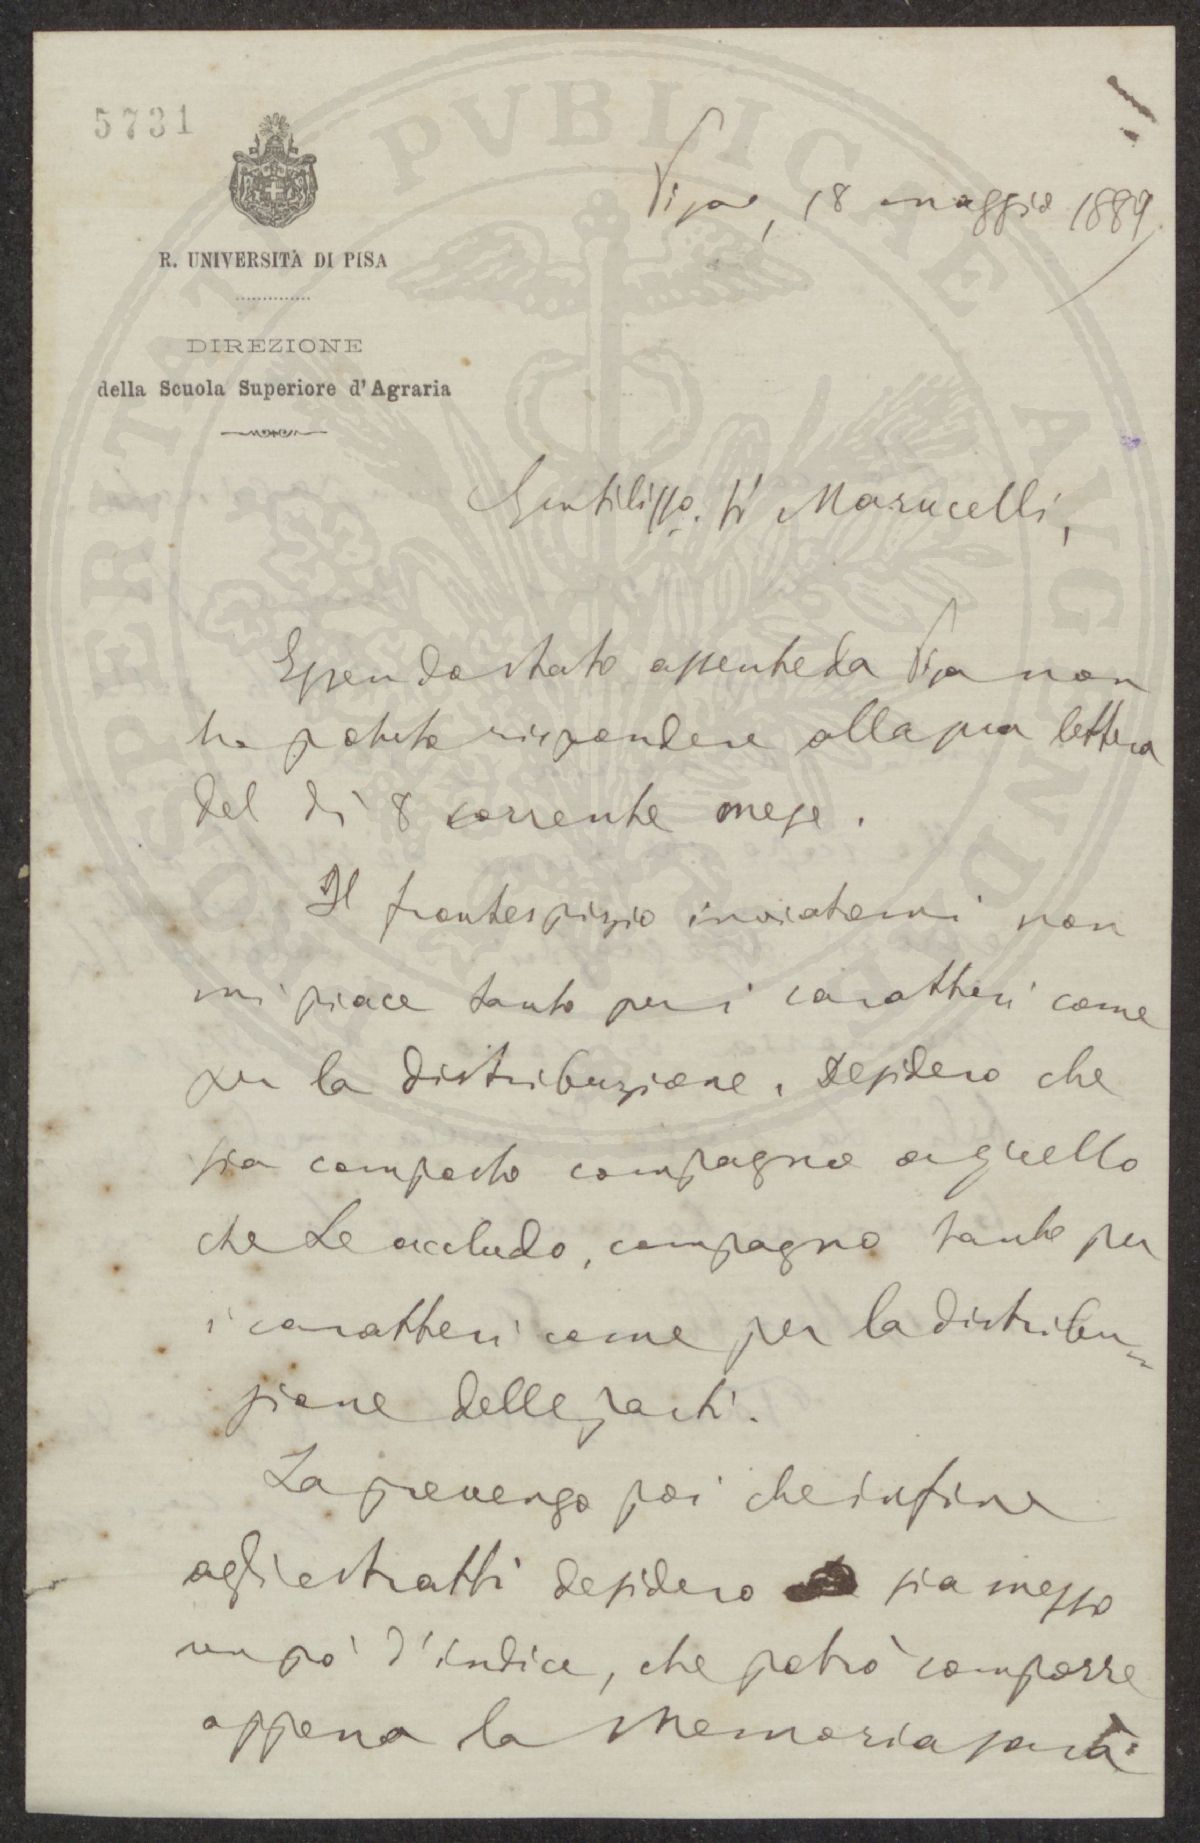 5731
R. UNIVERSITÀ DI PISA
DIREZIONE
della Scuola Superiore d'Agraria
Pisa, 18 maggio 1889
Gentilisso. Sr Marucelli,
Essendo stato assente da Pisa non
ho potuto rispondere alla sua lettera
del dì 8 corrente mese.
Il frontespizio inviatomi non
mi piace tanto per i caratteri come
per la distribuzione. Desidero che
sia composto compagno a quello
che Le accludo, compagno tanto per
i caratteri come per la distribu=
zione delle parti.
La prevengo poi che infine
agli estratti desidero sia messo
un po' d'indice, che potrò comporre
appena la Memoria sarà
PROSPERITATI PVBLICAE AVGENDAE